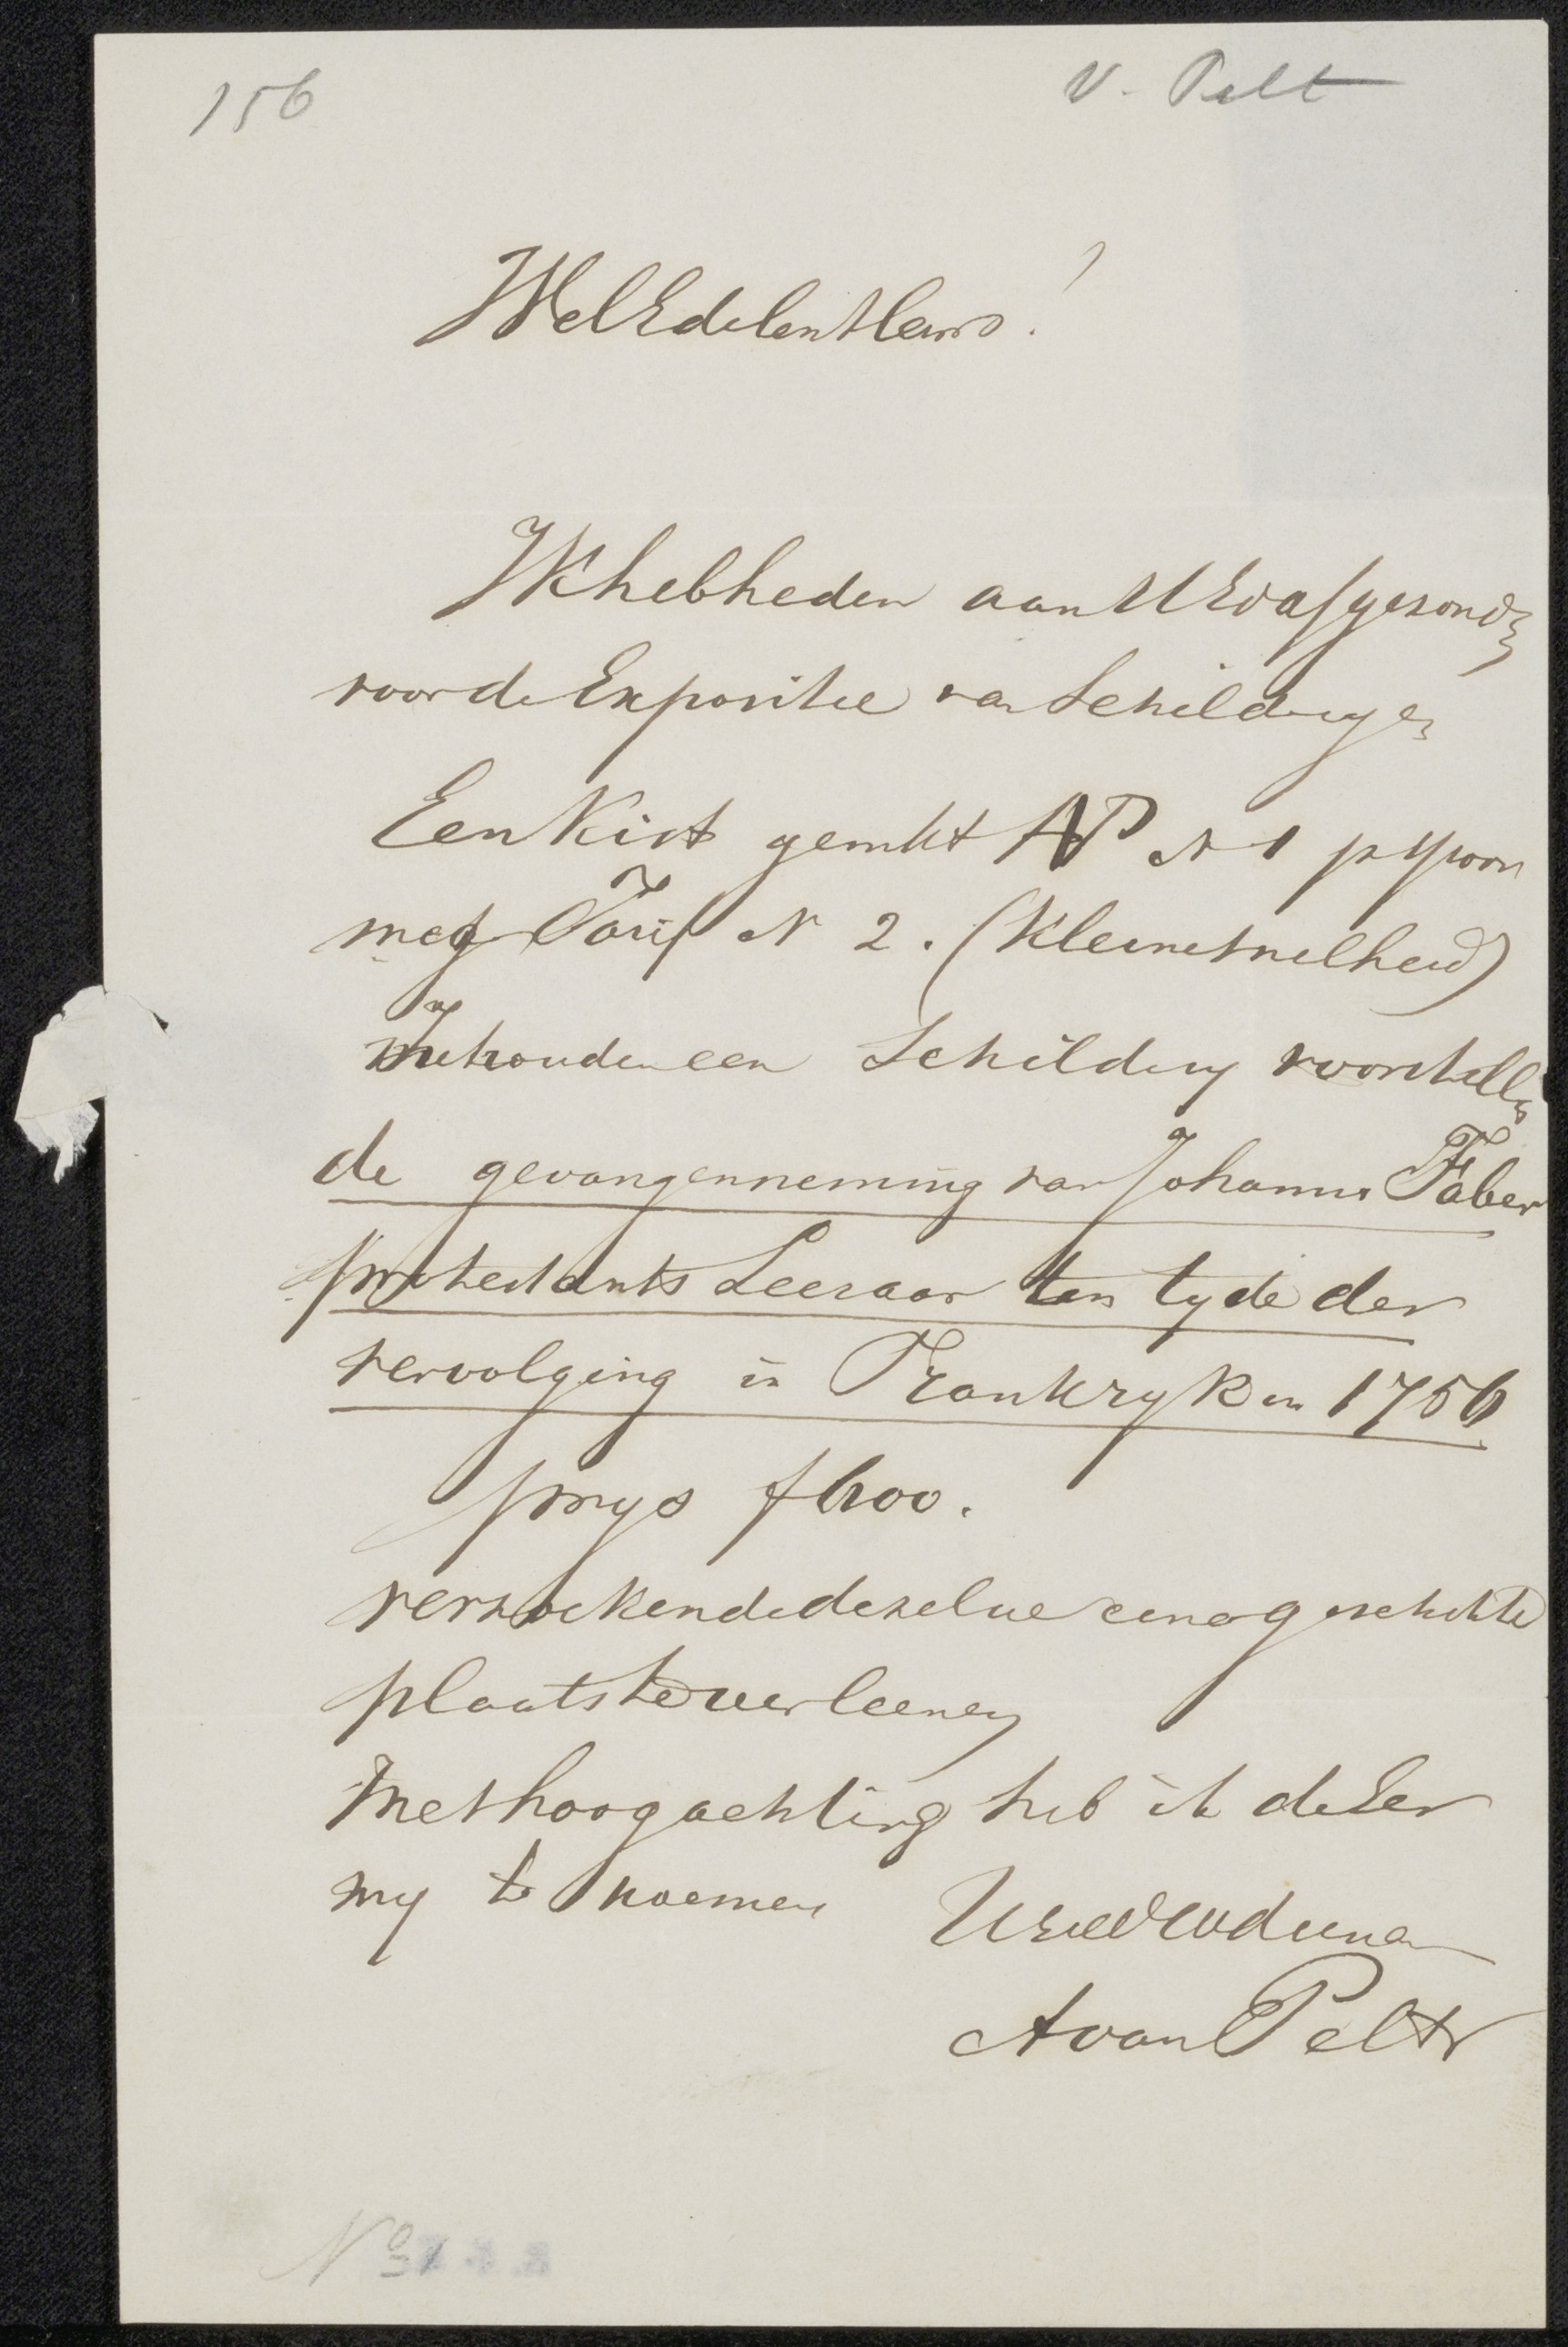 156
v. Pelt
WelEdelenHeer!
Ik heb heden aan UEd afgezonden
voor de Expositie van Schilderyen
Een Kist gemkt AP N 1 p spoor
weg Tarif N 2. (Kleine snelheid)
Inhouden een Schildery voorstellen
de gevangenneming van Johannes Faber
protestants Leeraar ten tyde der
vervolging in Frankryk in 1756
prys f 600.
verzoekende dezelve eene geschikte
plaats te verleenen
Met hoogachting heb ik de Eer
my te noemen UEdDWdienaar
A van Pelt
No